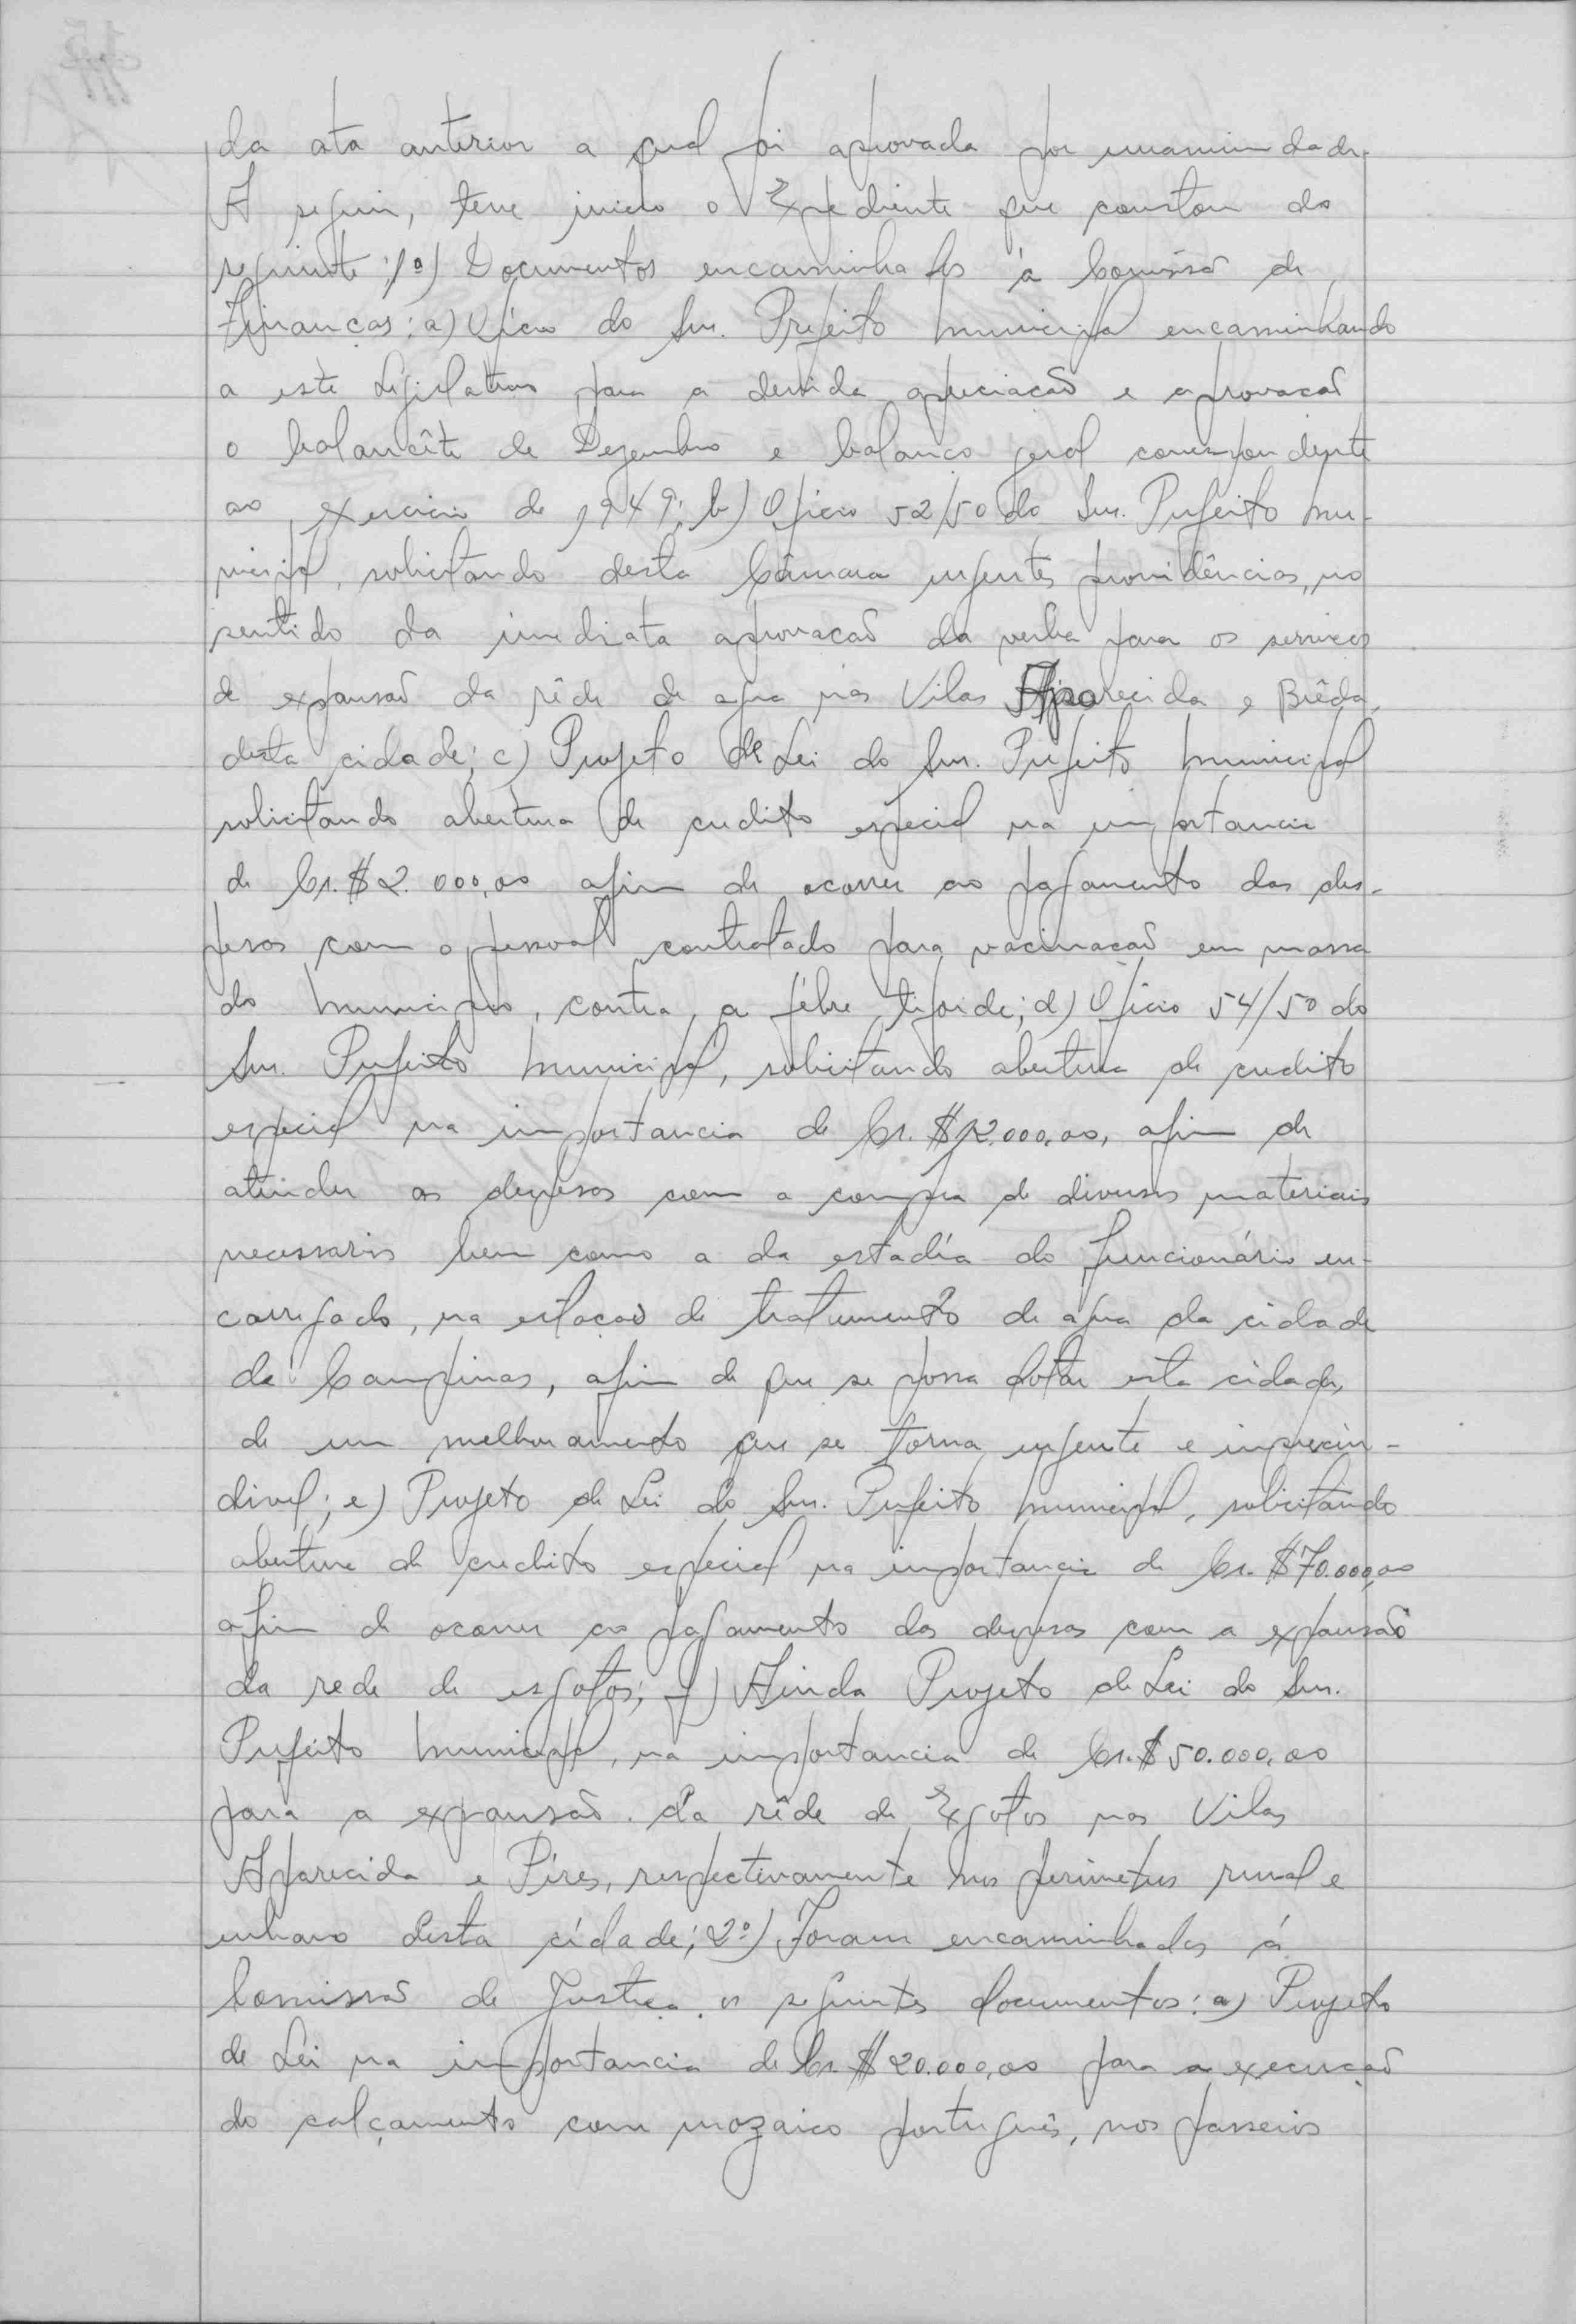 da ata anterior a qual foi aprovada por unanimidade.
A seguir, teve inicio o Expediente que constou do
seguinte: 1º) Documentos encaminhados á Comissão de
Finanças: a) Oficio do Snr. Prefeito Municipal encaminhando
a este Legislativo para a devida apreciacão e aprovacão
o balancête de Dezembro e balanco geral correspondente
ao exercicio de 1949; b) Oficio 52/50 do Snr. Prefeito Mu-
nicipal, solicitando desta Câmara urgentes providências, no
sentido da imediata aprovacão da verba para os servicos
de expansão da rêde de agua nas Vilas Aparecida e Brêda,
desta cidade; c) Projeto de Lei do Snr. Prefeito Municipal
solicitando abertura de credito especial na importancia
de Cr.$ 2.000,00 afim de ocorrer ao pagamento das des-
pesas com o pessoal contratado para vacinacão em massa
do Municipio, contra, a fébre tifoide; d) Oficio 54/50 do
Snr. Prefeito Municipal, solicitando abertura de credito
especial na importancia de Cr. $12.000,00, afim de
atender as despesas com a compra de diversos materiais
necessarios bem como a da estadía do funcionário en-
carregado, na estacão de tratamento de agua da cidade
de Campinas, afim de que se possa dotar esta cidade,
de um melhoramento que se torna urgente e imprecin-
divel; e) Projeto de Lei do Snr. Prefeito Municipal, solicitando
abertura de credito especial na importancia de Cr. $70.000,00
afim de ocorrer ao pagamento das despesas com a expansão
da rede de esgotos; f) Ainda Projeto de Lei do Snr.
Prefeito Municipal, na importancia de Cr.$ 50.000,00
para a expansão da rêde de Exgotos nas Vilas
Aparecida e Píres, respectivamente nos perimetros rural e
urbano desta cidade; 2º) Foram encaminhados á
Comissão de Justiça os seguintes documentos: a) Projeto
de Lei na importancia de Cr. $20.000,00 para a execução
do calçamento com mozaico português, nos passeios